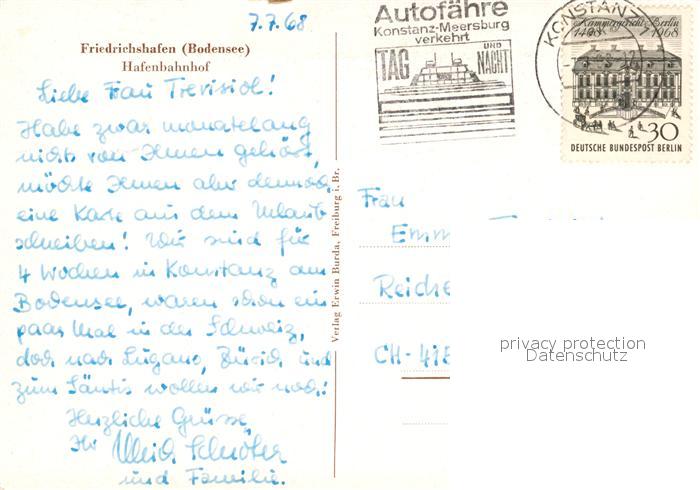 7.7.68
Friedrichshafen (Bodensee)
Hafenbahnhof
Liebe Frau Trevisiol!
Habe zwar monatelang
nichts von Ihnen gehört,
möchte Ihnen aber dennoch
eine Karte aus dem Urlaub
schreiben! Wir sind für
4 Wochen in Konstanz am
Bodensee, waren schon ein
paar Mal in der Schweiz,
doch nach Lugano, Zürich und
zum Säntis wollen wir noch!
Herzliche Grüsse
Ihr
und Familie.
Verlag Erwin Burda, Freiburg i. Br.
Autofähre
Konstanz-Meersburg
verkehrt
TAG UND NACHT
KONSTANZ
Kammergericht Berlin
1468 1968
30
DEUTSCHE BUNDESPOST BERLIN
Frau
Emm
Reiche
CH-41
privacy protection
Datenschutz